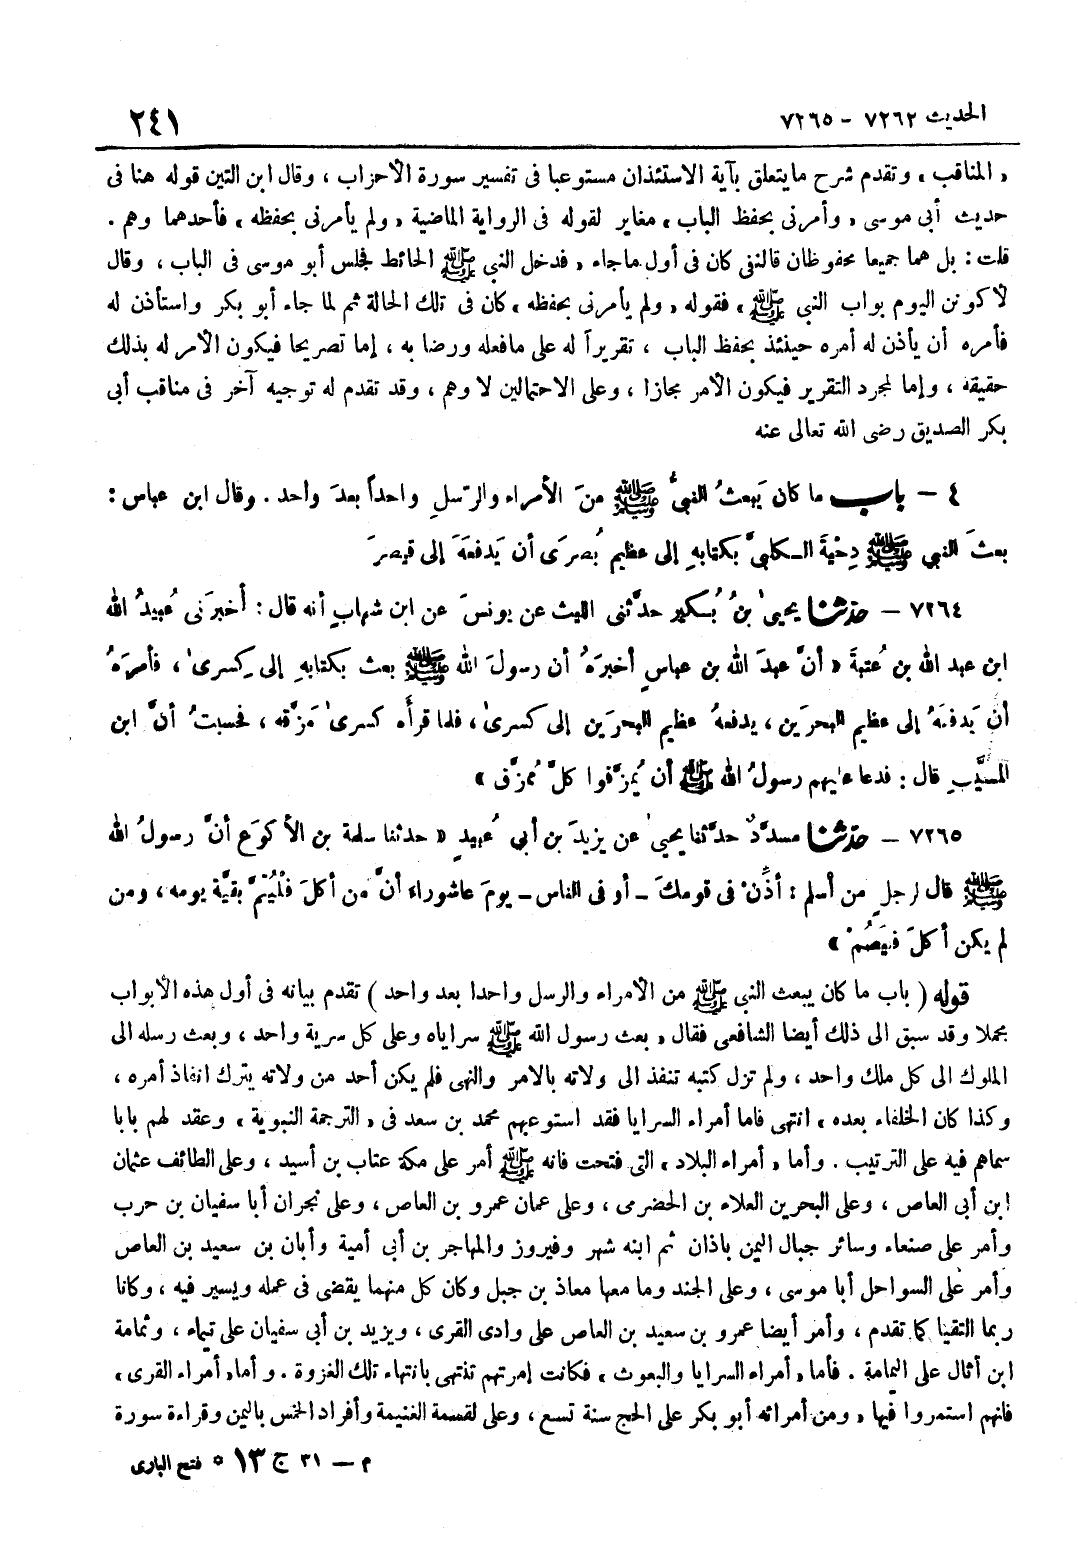 الحديث ٧٢٦٢ - ٧٢٦٥ ٢٤١
« المناقب » وتقدم شرح ما يتعلق بآية الاستئذان مستوعبا فى تفسير سورة الأحزاب ، وقال ابن التين قوله هنا فى
حديث أبى موسى « وأمرنى بحفظ الباب » مغاير لقوله فى الرواية الماضية « ولم يأمرنى بحفظه » فأحدهما وهم .
قلت : بل هما جميعا محفوظان فالنفى كان فى أول ماجاء « فدخل النبي ﷺ الحائط فجلس أبو موسى فى الباب ، وقال
لأكونن اليوم بواب النبي ﷺ » فقوله « ولم يأمرنى بحفظه » كان فى تلك الحالة ثم لما جاء أبو بكر واستأذن له
فأمره أن يأذن له أمره حينئذ بحفظ الباب ، تقريراً له على مافعله ورضا به ، إما تصريحا فيكون الأمر له بذلك
حقيقة ، وإما لمجرد التقرير فيكون الأمر مجازا ، وعلى الاحتمالين لا وهم ، وقد تقدم له توجيه آخر فى مناقب أبى
بكر الصديق رضى الله تعالى عنه
٤ - باب ما كان يَبعثُ النبيُّ ﷺ منَ الأمراء والرّسلِ واحداً بعدَ واحد . وقال ابن عباس :
بعثَ النبي ﷺ دِحْيةَ الكلبيَّ بكتابهِ إلى عظيم بُصرَى أن يَدفعَهَ إلى قيصرَ
٧٢٦٤ - حدثنا يحيىٰ بنُ بُكير حدَّثنى الليث عن يونسَ عن ابن شهابٍ أنه قال : أخبرَنى عُبيدُ الله
ابن عبد الله بن عُتبةَ « أنَّ عبدَ الله بن عباسٍ أخبرَهُ أن رسولَ الله ﷺ بعث بكتابهِ إلى كِسرىٰ ، فأمرَهُ
أن يَدفعَهُ إلى عظيم البحرَين ، يدفعهُ عظيم البحرَين إلى كسرىٰ ، فلما قرأَه كسرىٰ مَزَّقه ، فحسبتُ أنَّ ابن
المسَيَّبِ قال : فدعا عليهم رسولُ الله ﷺ أن يُمزَّقوا كلَّ مُمزَّق »
٧٢٦٥ - حدثنا مسدَّدٌ حدَّثنا يحيىٰ عن يزيدَ بن أبي عُبيدٍ « حدثنا سلمة بن الأكوَع أنَّ رسولُ الله
ﷺ قال لرجلٍ من أسلم : أذِّنْ فى قومكَ - أو فى الناس - يومَ عاشوراء أنَّ من أكلَ فلْيُتمَّ بقيَّة يومه ، ومن
لم يكن أكلَ فليَصُمْ »
قوله ( باب ما كان يبعث النبي ﷺ من الأمراء والرسل واحدا بعد واحد ) تقدم بيانه فى أول هذه الأبواب
مجملا وقد سبق الى ذلك أيضا الشافعى فقال « بعث رسول الله ﷺ سراياه وعلى كل سرية واحد ، وبعث رسله الى
الملوك الى كل ملك واحد ، ولم تزل كتبه تنفذ الى ولاته بالامر والنهى فلم يكن أحد من ولاته يترك انفاذ أمره ،
وكذا كان الخلفاء بعده » انتهى فاما أمراء السرايا فقد استوعبهم محمد بن سعد فى « الترجمة النبوية » وعقد لهم بابا
سماهم فيه على الترتيب . وأما « أمراء البلاد » التى فتحت فانه ﷺ أمر على مكة عتاب بن أسيد ، وعلى الطائف عثمان
ابن أبى العاص ، وعلى البحرين العلاء بن الحضرمى ، وعلى عمان عمرو بن العاص ، وعلى نجران أبا سفيان بن حرب
وأمر على صنعاء وسائر جبال اليمن باذان ثم ابنه شهر وفيروز والمهاجر بن أبى أمية وأبان بن سعيد بن العاص
وأمر على السواحل أبا موسى ، وعلى الجند وما معها معاذ بن جبل وكان كل منهما يقضى فى عمله ويسير فيه ، وكانا
ربما التقيا كما تقدم ، وأمر أيضا عمرو بن سعيد بن العاص على وادى القرى ، ويزيد بن أبى سفيان على تيماء ، وثمامة
ابن أثال على اليمامة . فأما « أمراء السرايا والبعوث » فكانت إمرتهم تنتهى بانتهاء تلك الغزوة . وأما « أمراء القرى »
فانهم استمروا فيها « ومن أمرائه أبو بكر على الحج سنة تسع ، وعلى لقسمة الغنيمة وأفراد الخمس باليمن وقراءة سورة
م - ٣١ ج ١٣ * فتح البارى